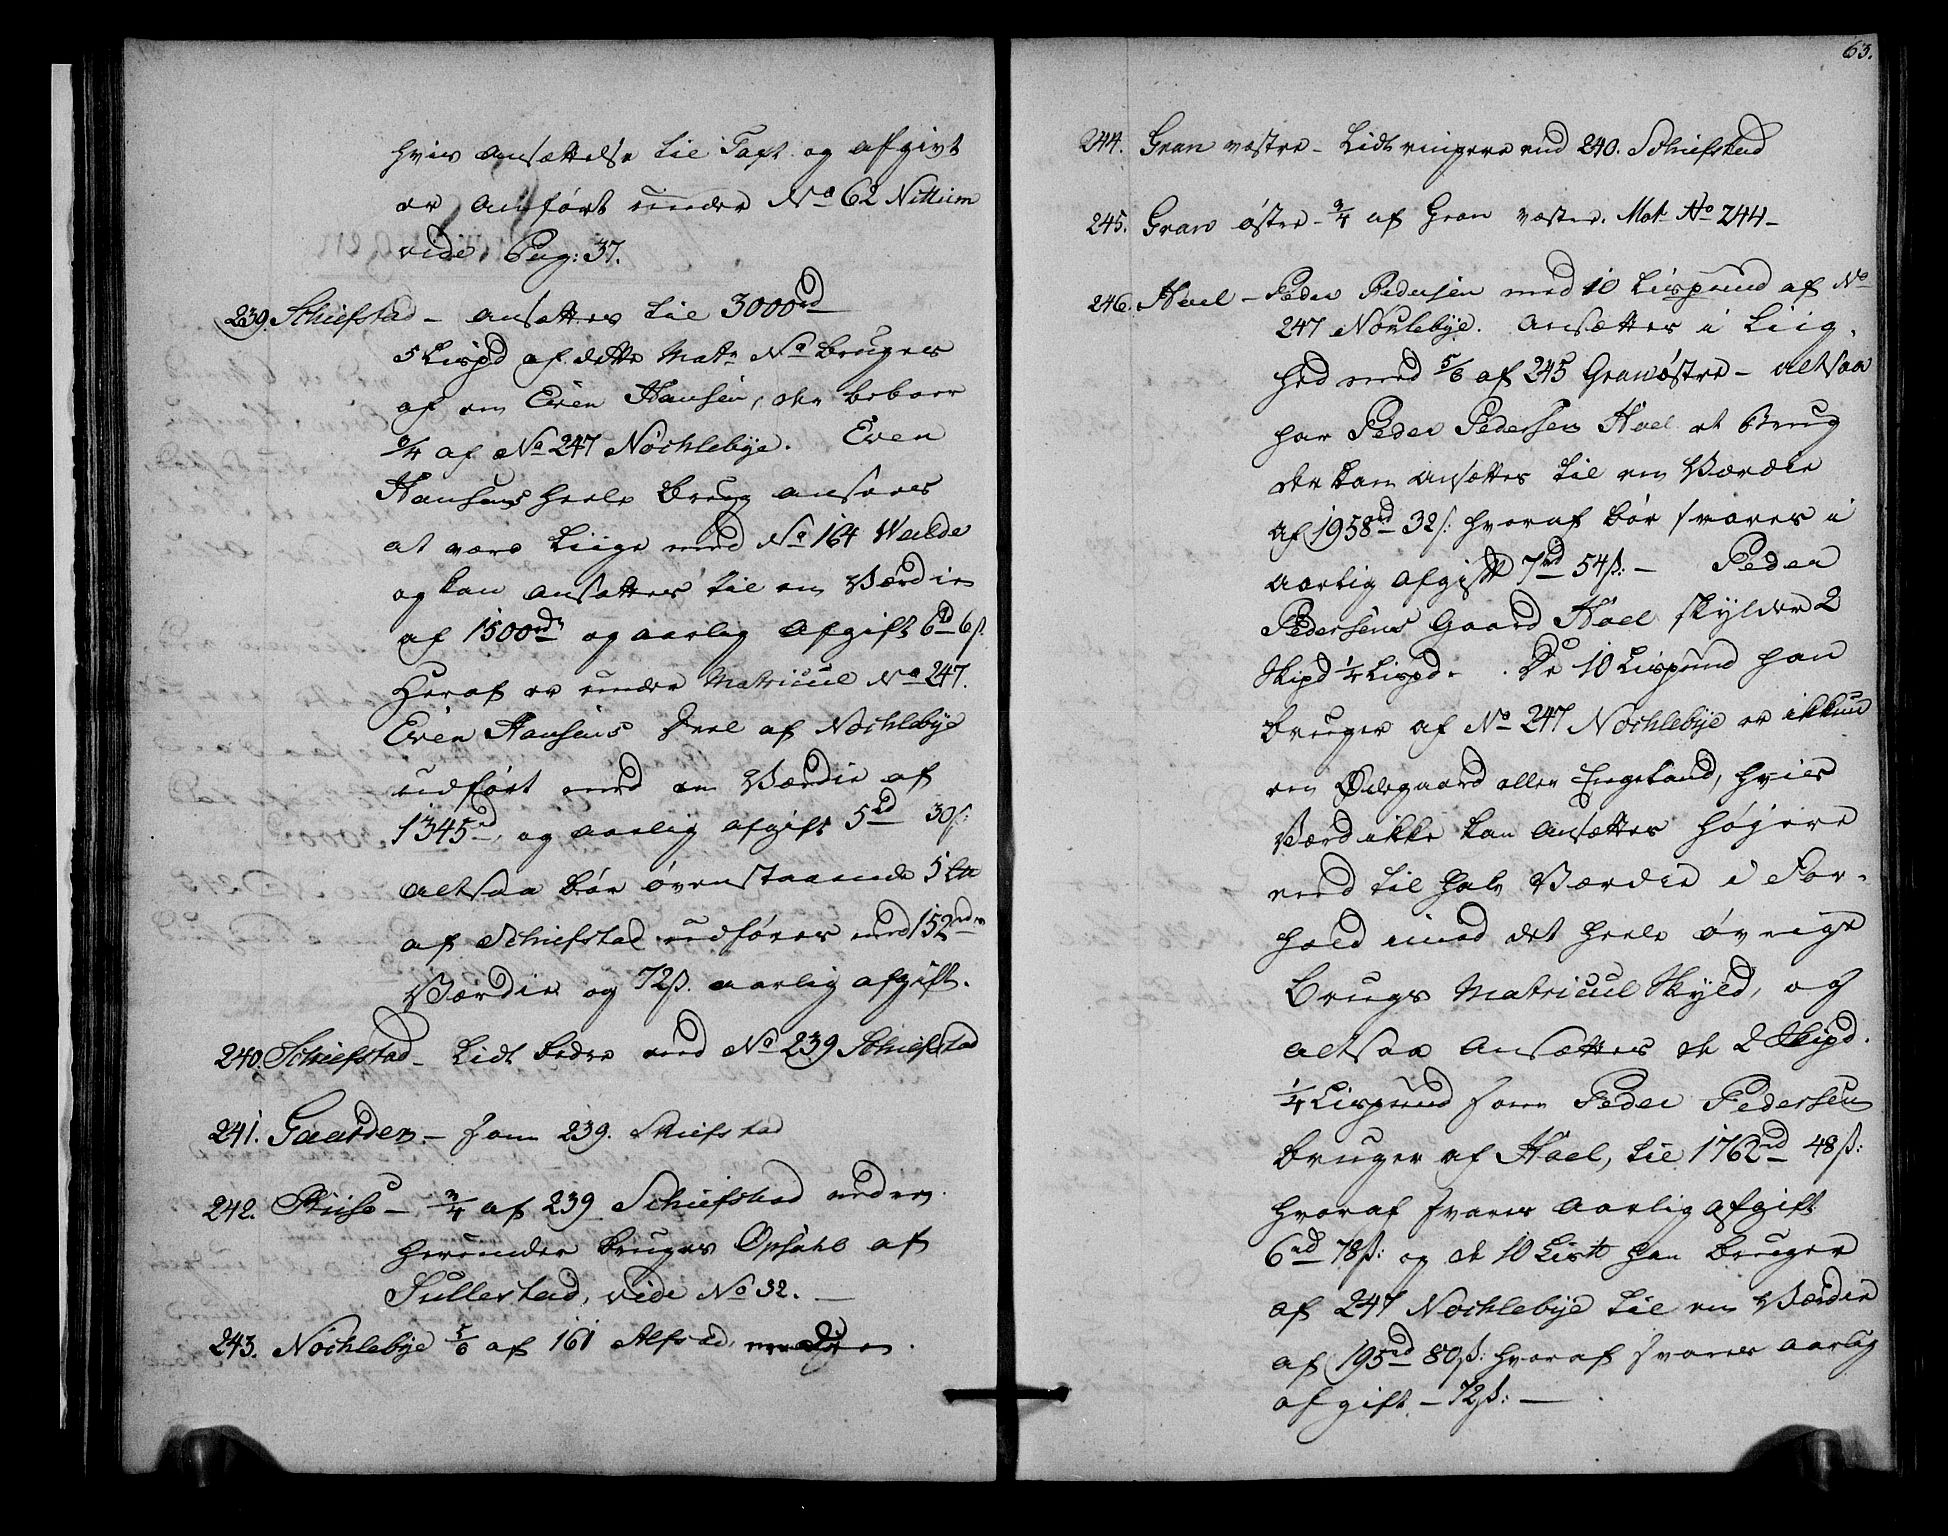 hvis Ansættelse til Taxt og afgivt
er Anført under No 62 Nittum
vide Pag: 37.
239. Schiefstad – ansættes til 3000rd
5 Lispd af dette Matr No bruges
af en Even Hansen, der beboer
af No 247 Nöchlebye. Even
Hansens heele Brug ansees
at være Liige med No 164
og kan ansættes til en Værdie
af 1500rdr og aarlig Afgift 6rd 6s.
Heraf er under Matricul No 247.
Even Hansens Deel af Nöchlebye
udført med en Værdie af
1345rd, og aarlig afgift 5rd 30s:
altsaa bør ovenstaaende 5 Ltt
af Schiefstad udføres med 152rdr
Værdie og 72s. aarlig afgift.
240. Schiefstad – Lidt bedre end No 239 Schiefstad
241. Gaarden – som 239. Skiefstad
242. – 3/4 af 239 Schiefstad
herunder bruges Opsahl af
Sullestad, vide No 32. –
243. Nöchlebye 5/6 af 161 Alfstad
63.
244. Gran vestre – Lidt ringere end 240. Schiefstad
245. Gran østre – 3/4 af Gran vestre. Mat No 244 –
246. Hoel – Peder Pedersen med 10 Lispund af No
247 Nöclebye. Ansættes i Liig-
hed med 5/6 af 245 Gran østre – altsaa
har Peder Pedersen Hoel et Brug
der kan ansættes til en Værdie
af 1958rd 32s: hvoraf bør svares i
aarlig Afgift 7rd 54s: – Peder
Pedersens Gaard Hoel skylder 2
Skpd 1/4 Lispd. De 10 Lispund han
bruger af No 247 Nöchlebye er ikkun
en Ødegaard eller Engeland, hvis
Værd ikke kan Ansættes højere
end til halv Værdie i For-
hold imod det heele øvrige
Brugs Matricul Skyld, og
altsaa Ansættes de 2 Skipd.
1/4 Lispund som Peder Pedersen
bruger af Hoel, til 1762rd 48s:
hvoraf svares Aarlig afgift
6rd 78s: og de 10 Lis℔ han bruger
af 247 Nöchlebye til en Værdie
af 195rd 80s: hvoraf svares aarlig
afgift – 72s: –